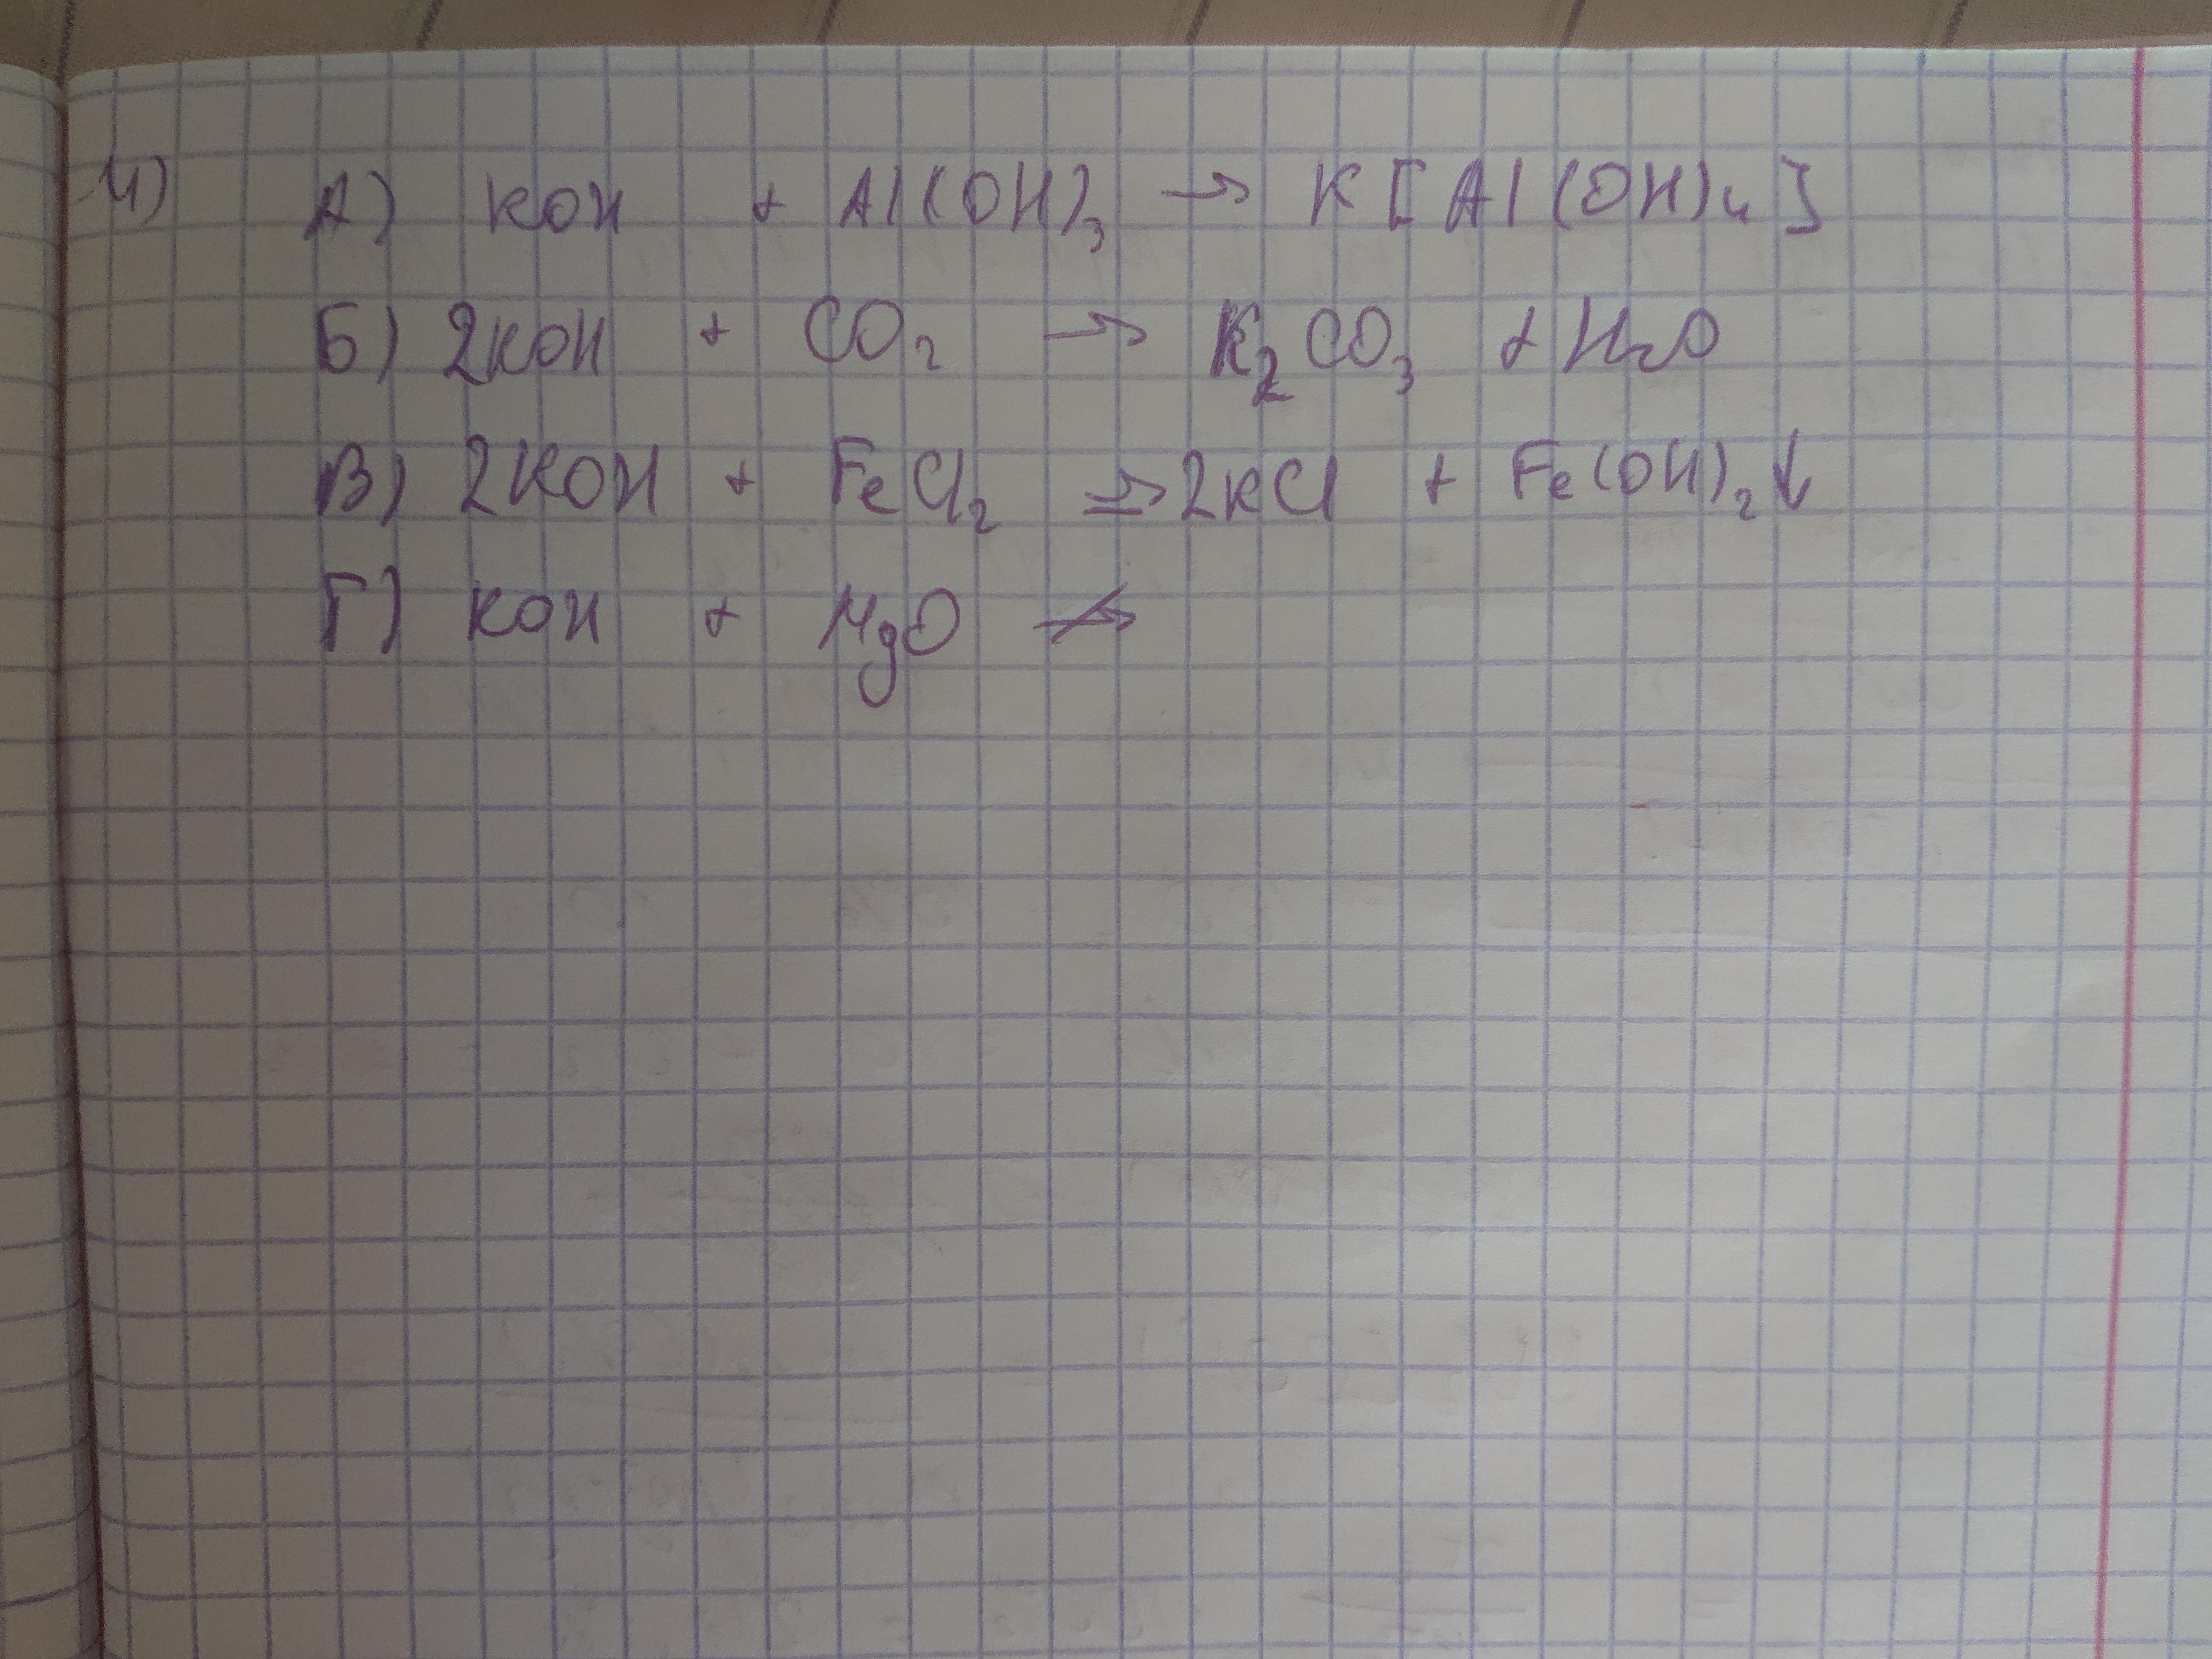 4) А) KOH + Al(OH)₃ → K[Al(OH)₄]
Б) 2KOH + CO₂ → K₂CO₃ + H₂O
В) 2KOH + FeCl₂ → 2KCl + Fe(OH)₂↓
Г) KOH + MgO ↛